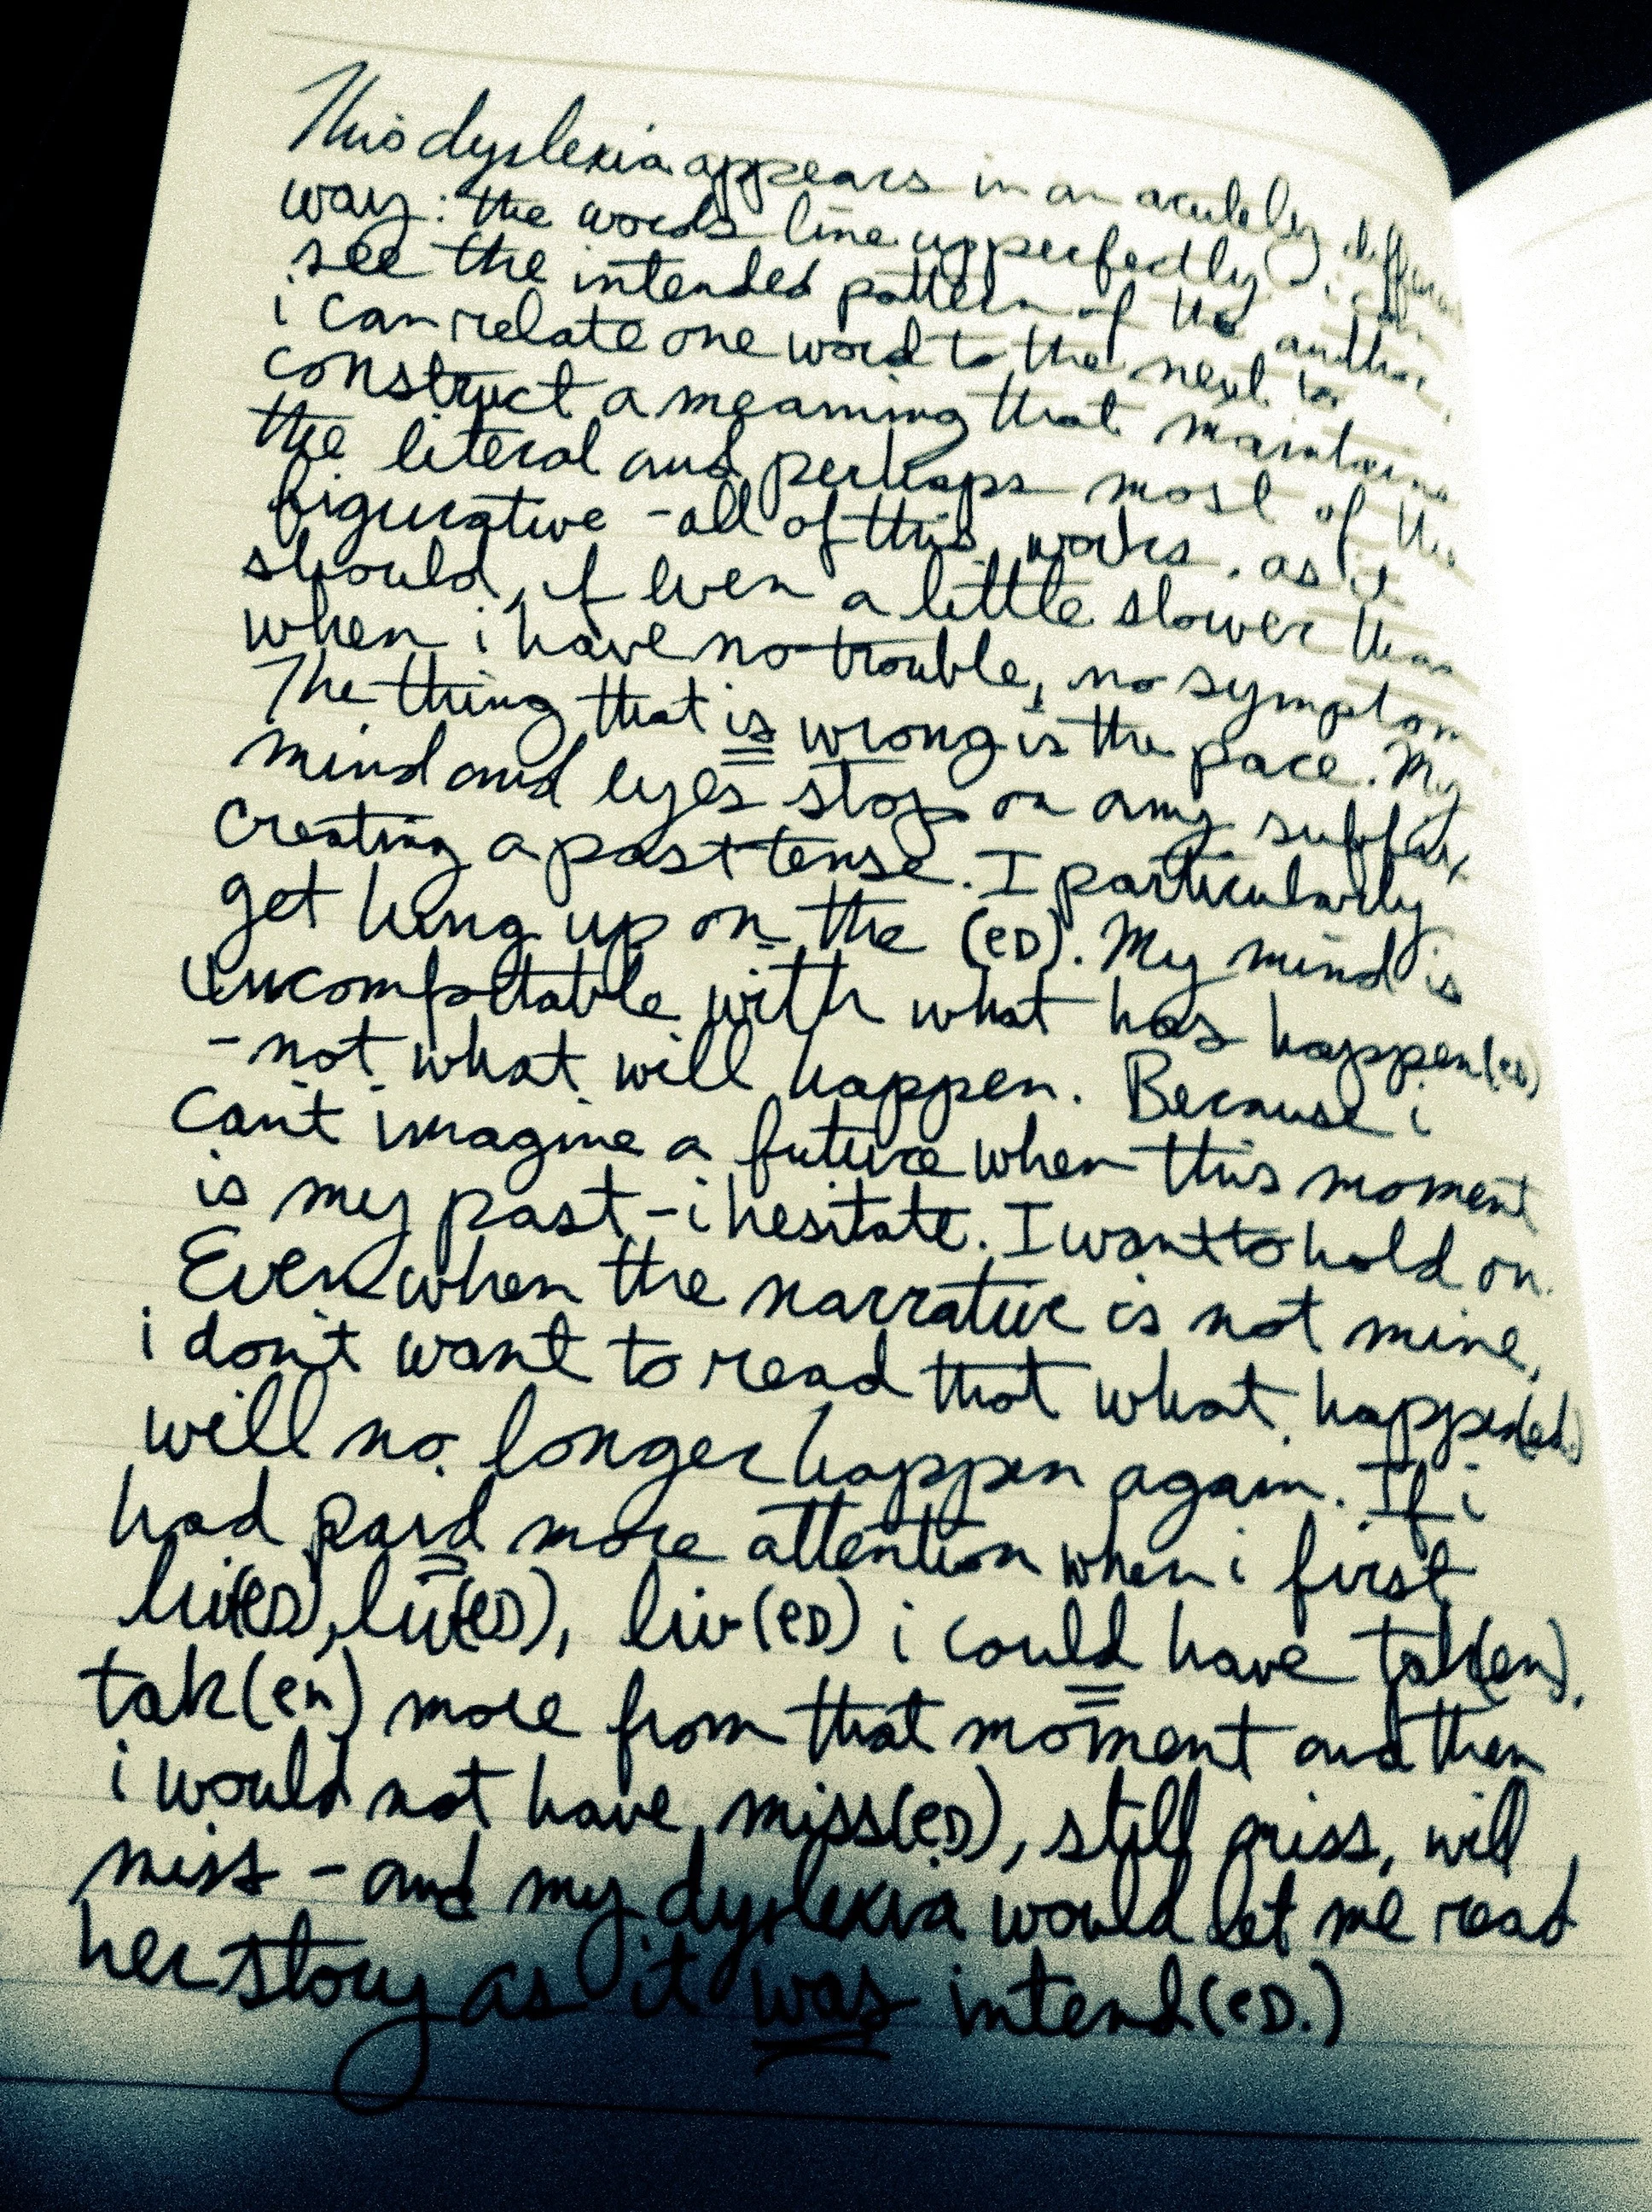 This dyslexia appears in an acutely different
way: the words line up perfectly, i can
see the intended pattern of the author,
i can relate one word to the next to
construct a meaning that maintains
the literal and perhaps most of the
figurative - all of this works, as it
should, if even a little slower than
when i have no trouble, no symptom
The thing that is wrong is the pace. My
mind and eyes stop on any suffix
creating a past tense. I particularly
get hung up on the (eD). My mind is
uncomfortable with what has happen(eD)
- not what will happen. Because i
can't imagine a future when this moment
is my past - i hesitate. I want to hold on.
Even when the narrative is not mine,
i don't want to read that what happen(ed)
will no longer happen again. If i
had paid more attention when i first
liv(eD), liv(eD), liv(eD) i could have tak(en),
tak(en) more from that moment and then
i would not have miss(eD), still miss, will
miss - and my dyslexia would let me read
her story as it was intend(eD.)